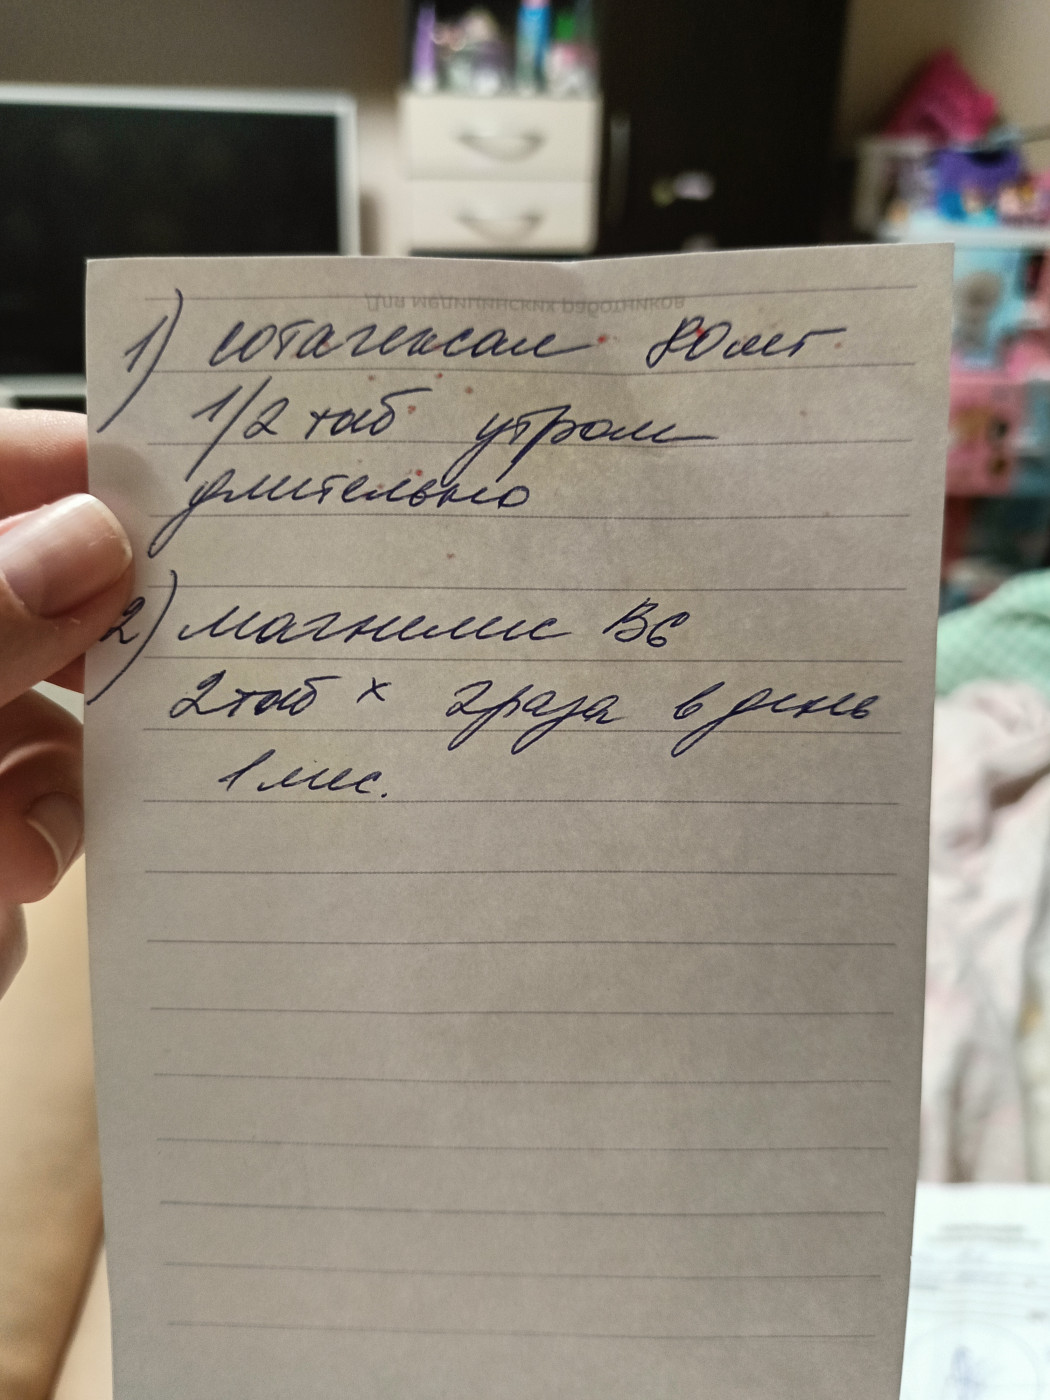 Для медицинских работников
1) сотагексал 80 мг
1/2 таб утром
длительно
2) магнелис B6
2 таб x 2 раза в день
1 мес.